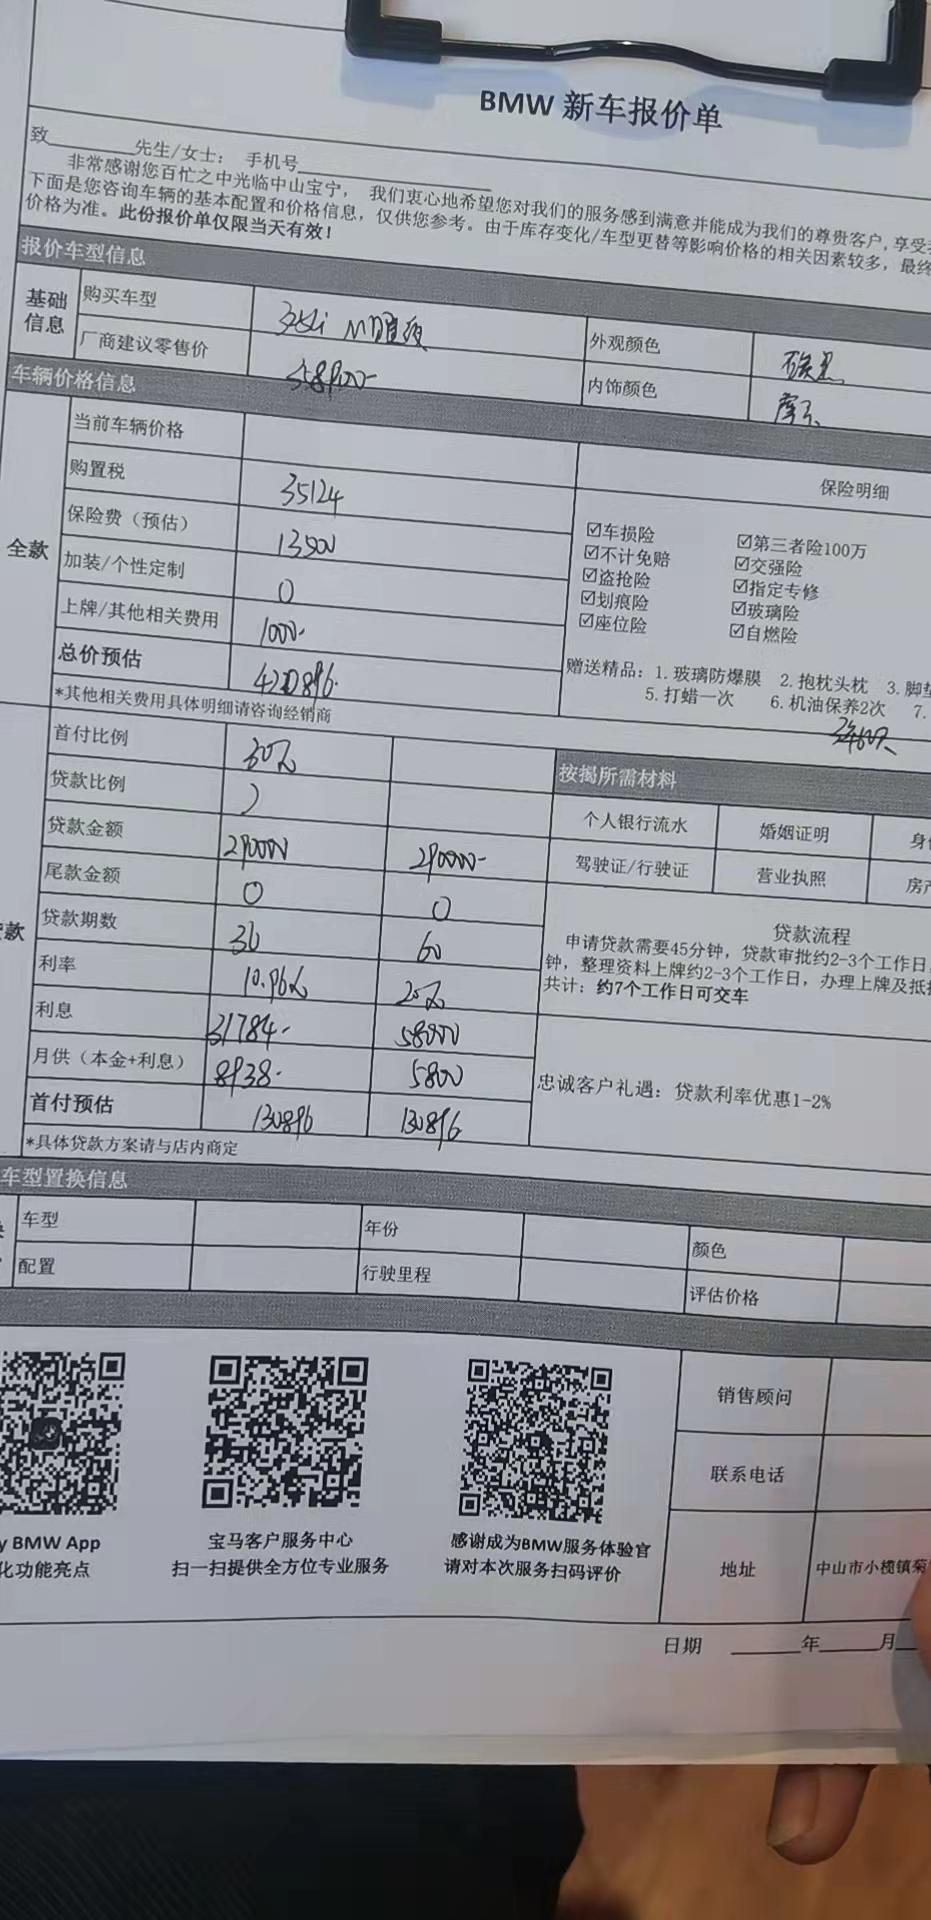 BMW 新车报价单
致 先生/女士： 手机号
非常感谢您百忙之中光临中山宝宁， 我们衷心地希望您对我们的服务感到满意并能成为我们的尊贵客户,享受
下面是您咨询车辆的基本配置和价格信息，仅供您参考。由于库存变化/车型更替等影响价格的相关因素较多，最终
价格为准。此份报价单仅限当天有效!
报价车型信息
基础信息
购买车型
外观颜色
厂商建议零售价
内饰颜色
车辆价格信息
全款
当前车辆价格
保险明细
购置税 35124
保险费（预估） 13500
加装/个性定制 0
上牌/其他相关费用 1000-
总价预估 420896.
*其他相关费用具体明细请咨询经销商
☑车损险 ☑第三者险100万
☑不计免赔 ☑交强险
☑盗抢险 ☑指定专修
☑划痕险 ☑玻璃险
☑座位险 ☑自燃险
赠送精品：1.玻璃防爆膜 2.抱枕头枕 3.脚垫
5.打蜡一次 6.机油保养2次 7.
款
首付比例 30%
贷款比例
贷款金额 290000 290000-
尾款金额 0 0
贷款期数 36 60
利率 10.96% 20%
利息 31784- 58000
月供（本金+利息） 8938- 5800
首付预估 130896 130896
*具体贷款方案请与店内商定
按揭所需材料
个人银行流水 婚姻证明 身
驾驶证/行驶证 营业执照 房产
贷款流程
申请贷款需要45分钟，贷款审批约2-3个工作日
钟，整理资料上牌约2-3个工作日，办理上牌及抵
共计：约7个工作日可交车
忠诚客户礼遇：贷款利率优惠1-2%
车型置换信息
车型 年份 颜色
配置 行驶里程 评估价格
y BMW App
化功能亮点
宝马客户服务中心
扫一扫提供全方位专业服务
感谢成为BMW服务体验官
请对本次服务扫码评价
销售顾问
联系电话
地址 中山市小榄镇菊
日期 年 月